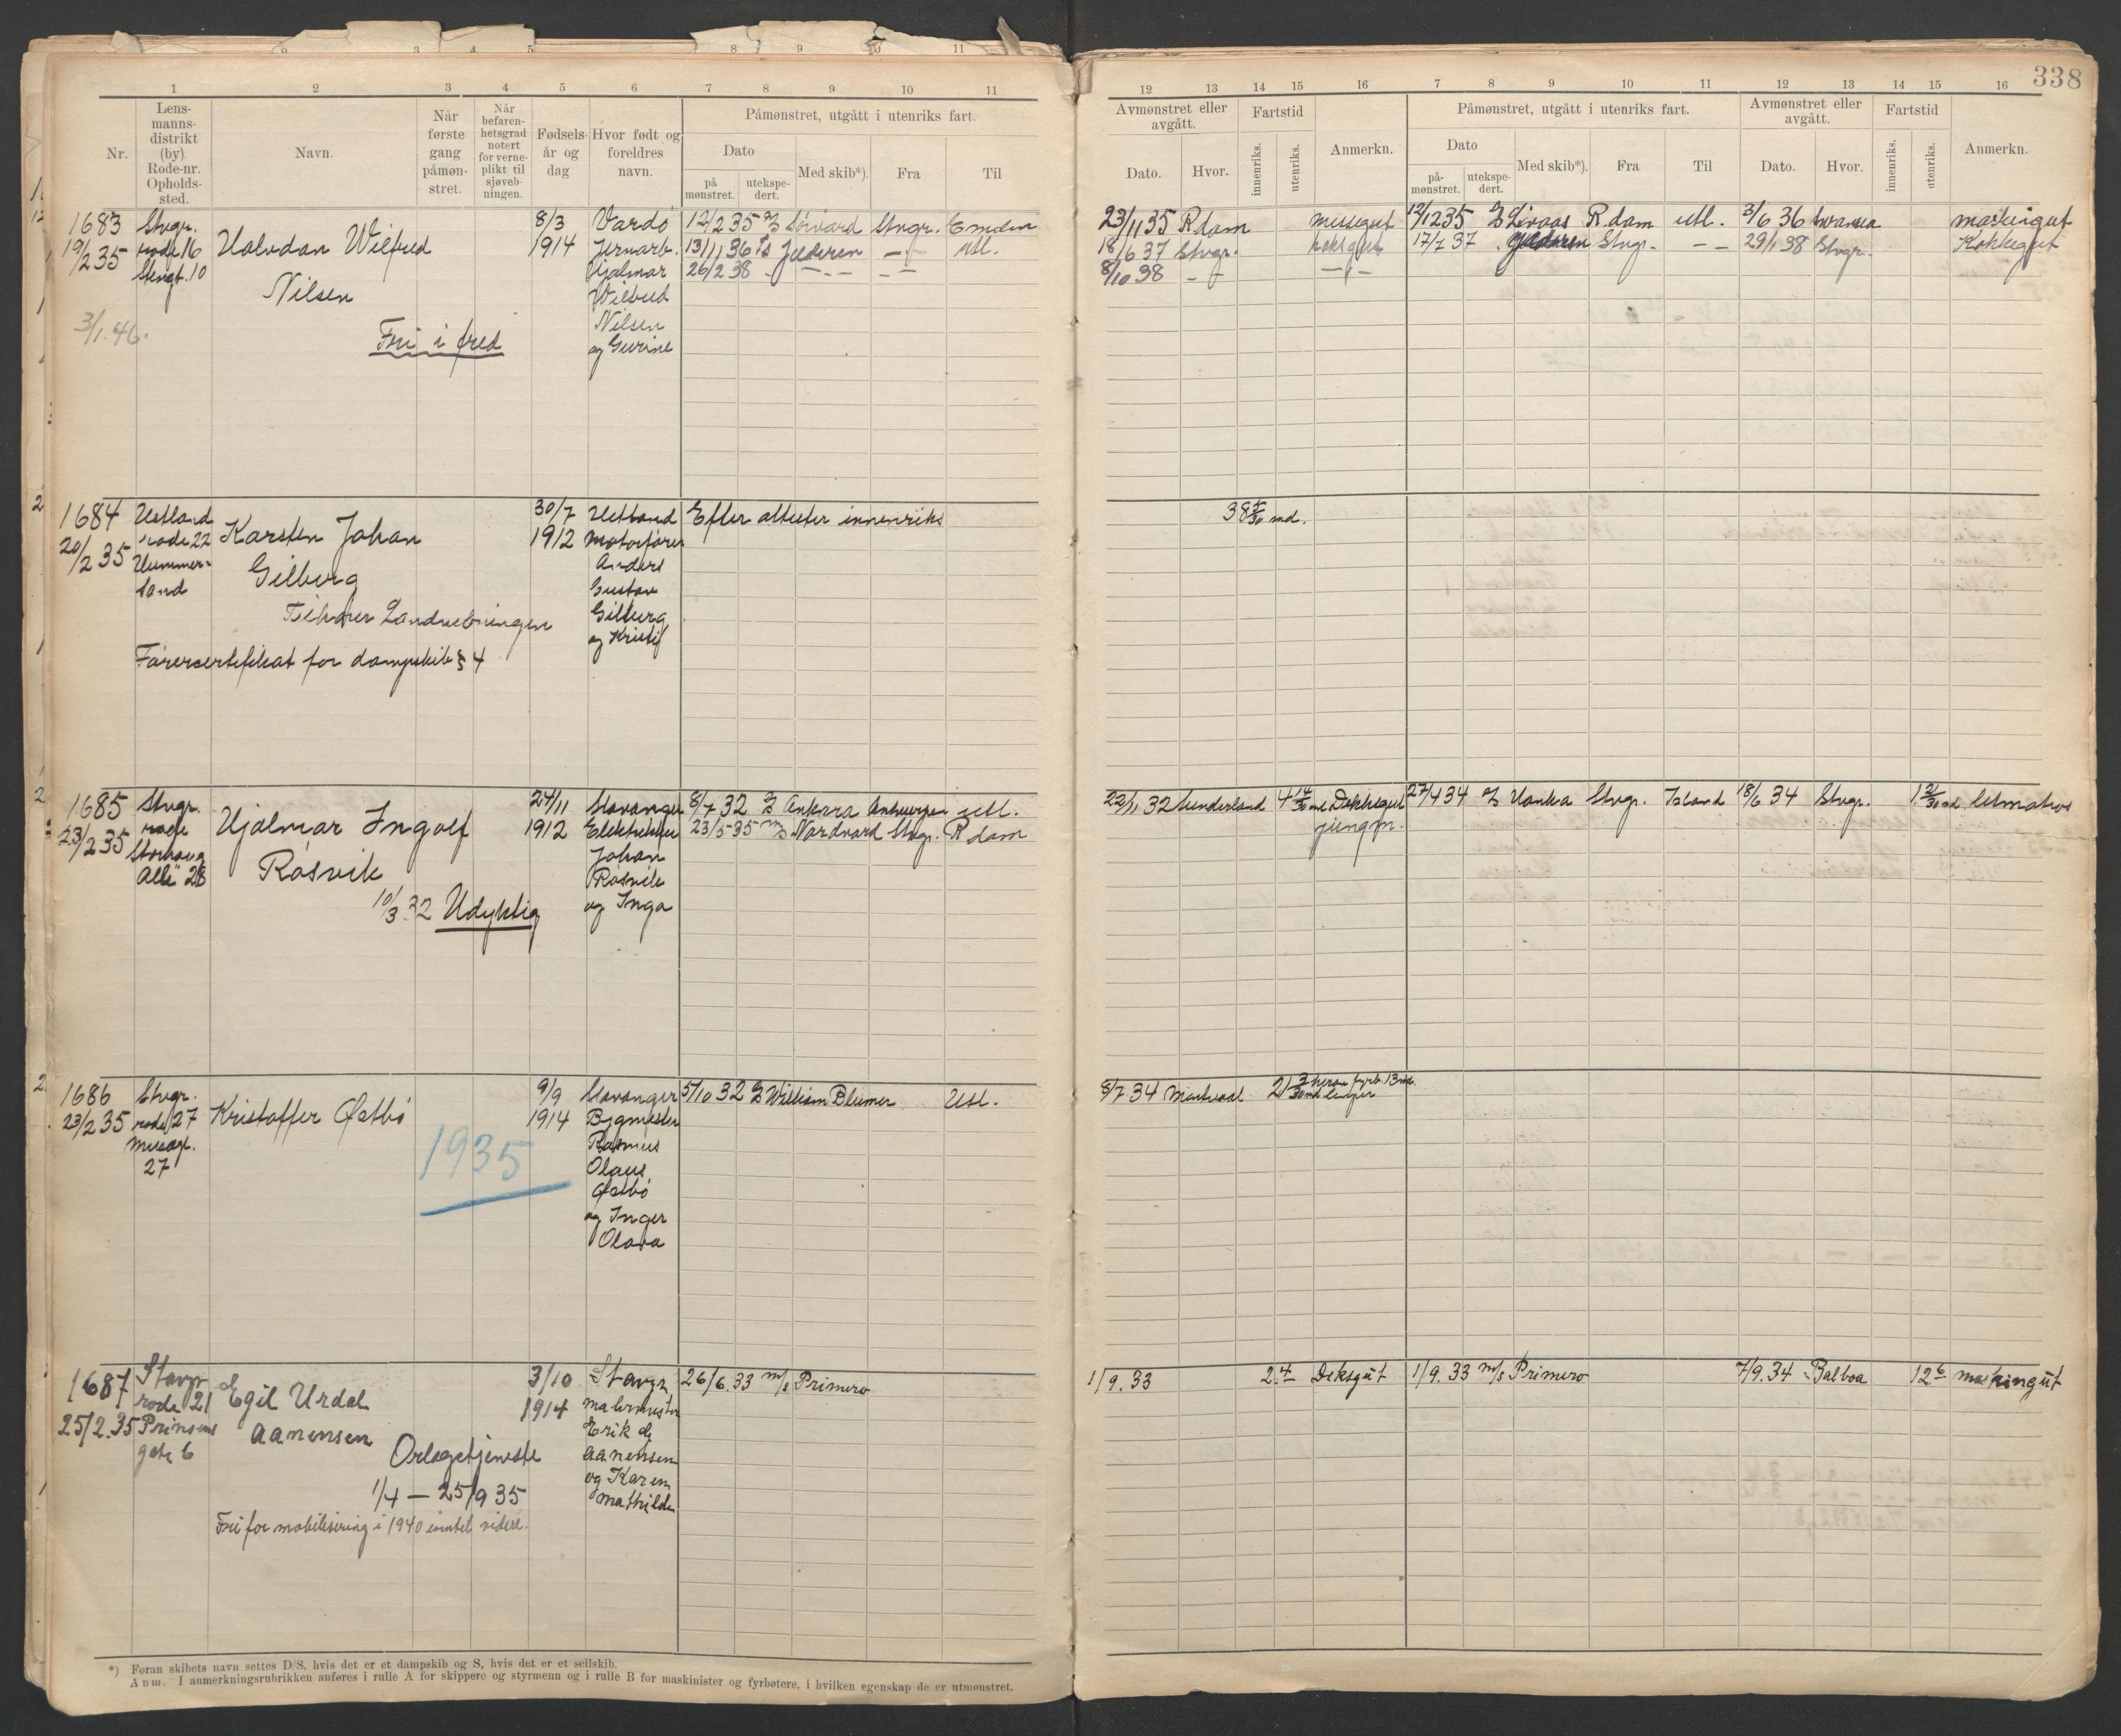 338
1 2 3 4 5 6 7 8 9 10 11
Nr.
Lens-
manns-
distrikt
(by)
Rode-nr.
Opholds-
sted.
Navn.
Når
første
gang
påmøn-
stret.
Når
befaren-
hetsgrad
notert
for verne-
plikt til
sjøveb-
ningen.
Fødsels-
år og
dag
Hvor født og
foreldres
navn.
Påmønstret, utgått i utenriks fart.
Dato
på
mønstret.
utekspe-
dert.
Med skib*).
Fra
Til
12 13 14 15 16 7 8 9 10 11 12 13 14 15 16
Avmønstret eller
avgått.
Dato.
Hvor.
Fartstid
innenriks.
utenriks.
Anmerkn.
Påmønstret, utgått i utenriks fart.
Dato
på-
mønstret.
utekspe-
dert.
Med skib*).
Fra
Til
Avmønstret eller
avgått.
Dato.
Hvor.
Fartstid
innenriks.
utenriks.
Anmerkn.
1683
19/2 35
3/1.46.
Stvgr.
rode 16
Stengt. 10
Halvdan Wilfred
Nilsen
Fri i fred
8/3
1914
Vardö
Jernarb.
Hjalmar
Wilfred
Nilsen
og Gurine
12/2 35 Stvgr. Emden
13/11 36 Jæderen - - Utl.
26/2 38 - - - -
23/11 35 R.dam
18/6 37 Stvgr.
8/10 38 - -
messegut
kokkgut
12/12 35 Livaas R.dam Utl. 3/6 36 Swansea maskingut
17/7 37 Jæderen Stvgr. - - 29/1 38 Stvgr. Kokkegut
1684
20/2 35
Hetland
rode 22
Hummer-
sand
Karsten Johan
Gilberg
Tilhører Landvebningen
Førercertifikat for dampskib § 4
30/7
1912
Hetland
Motorfører
Anders
Gustav
Gilberg
og Kristi
Efter attester innenriks
38 5/30 md.
1685
23/2 35
Stvgr.
rode
Storhaug
Allé 28
Hjalmar Ingolf
Rosvik
10/3 32 Udyktig
24/11
1912
Stavanger
Elektriker
Johan
Rosvik
og Inga
8/7 32 Ankara Antwerpen Utl.
23/5-35 Nordvard Stvgr. R dam
22/11 32 Sunderland 4 14/30 md Dekksgut
jungm.
27/4 34 Hanka Stvgr. Island 18/6 34 Stvgr. 1 2/30 md. letmatros
1686
23/2 35
Stvgr.
rode 27
Museogt.
27
Kristoffer Østbö
1935
9/9
1914
Stavanger
Bygmester
Rasmus
Olaus
Østbö
og Inger
Olava
5/10 32 William Blumer Utl.
8/7 34 Montreal 21 3/30 md
1687
25/2.35
Stavgr
rode 21
Prinsens
gate 6
Egil Urdal
Aanensen
Orlogstjeneste
1/4 — 25/9 35
Fri for mobilisering i 1940 inntil videre.
3/10
1914
Stavgr,
malermester
Erik G
Aanensen
og Karen
Mathilde
26/6.33 m/s Primero
1/9.33 2.4 Deksgut
1/9.33 m/s Primero 7/9.34 Balboa 12 6 maskingut
*) Foran skibets navn settes D/S, hvis det er et dampskib og S, hvis det er et seilskib.
Anm. I anmerkningsrubrikken anføres i rulle A for skippere og styrmenn og i rulle B for maskinister og fyrbøtere, i hvilken egenskap de er utmønstret.